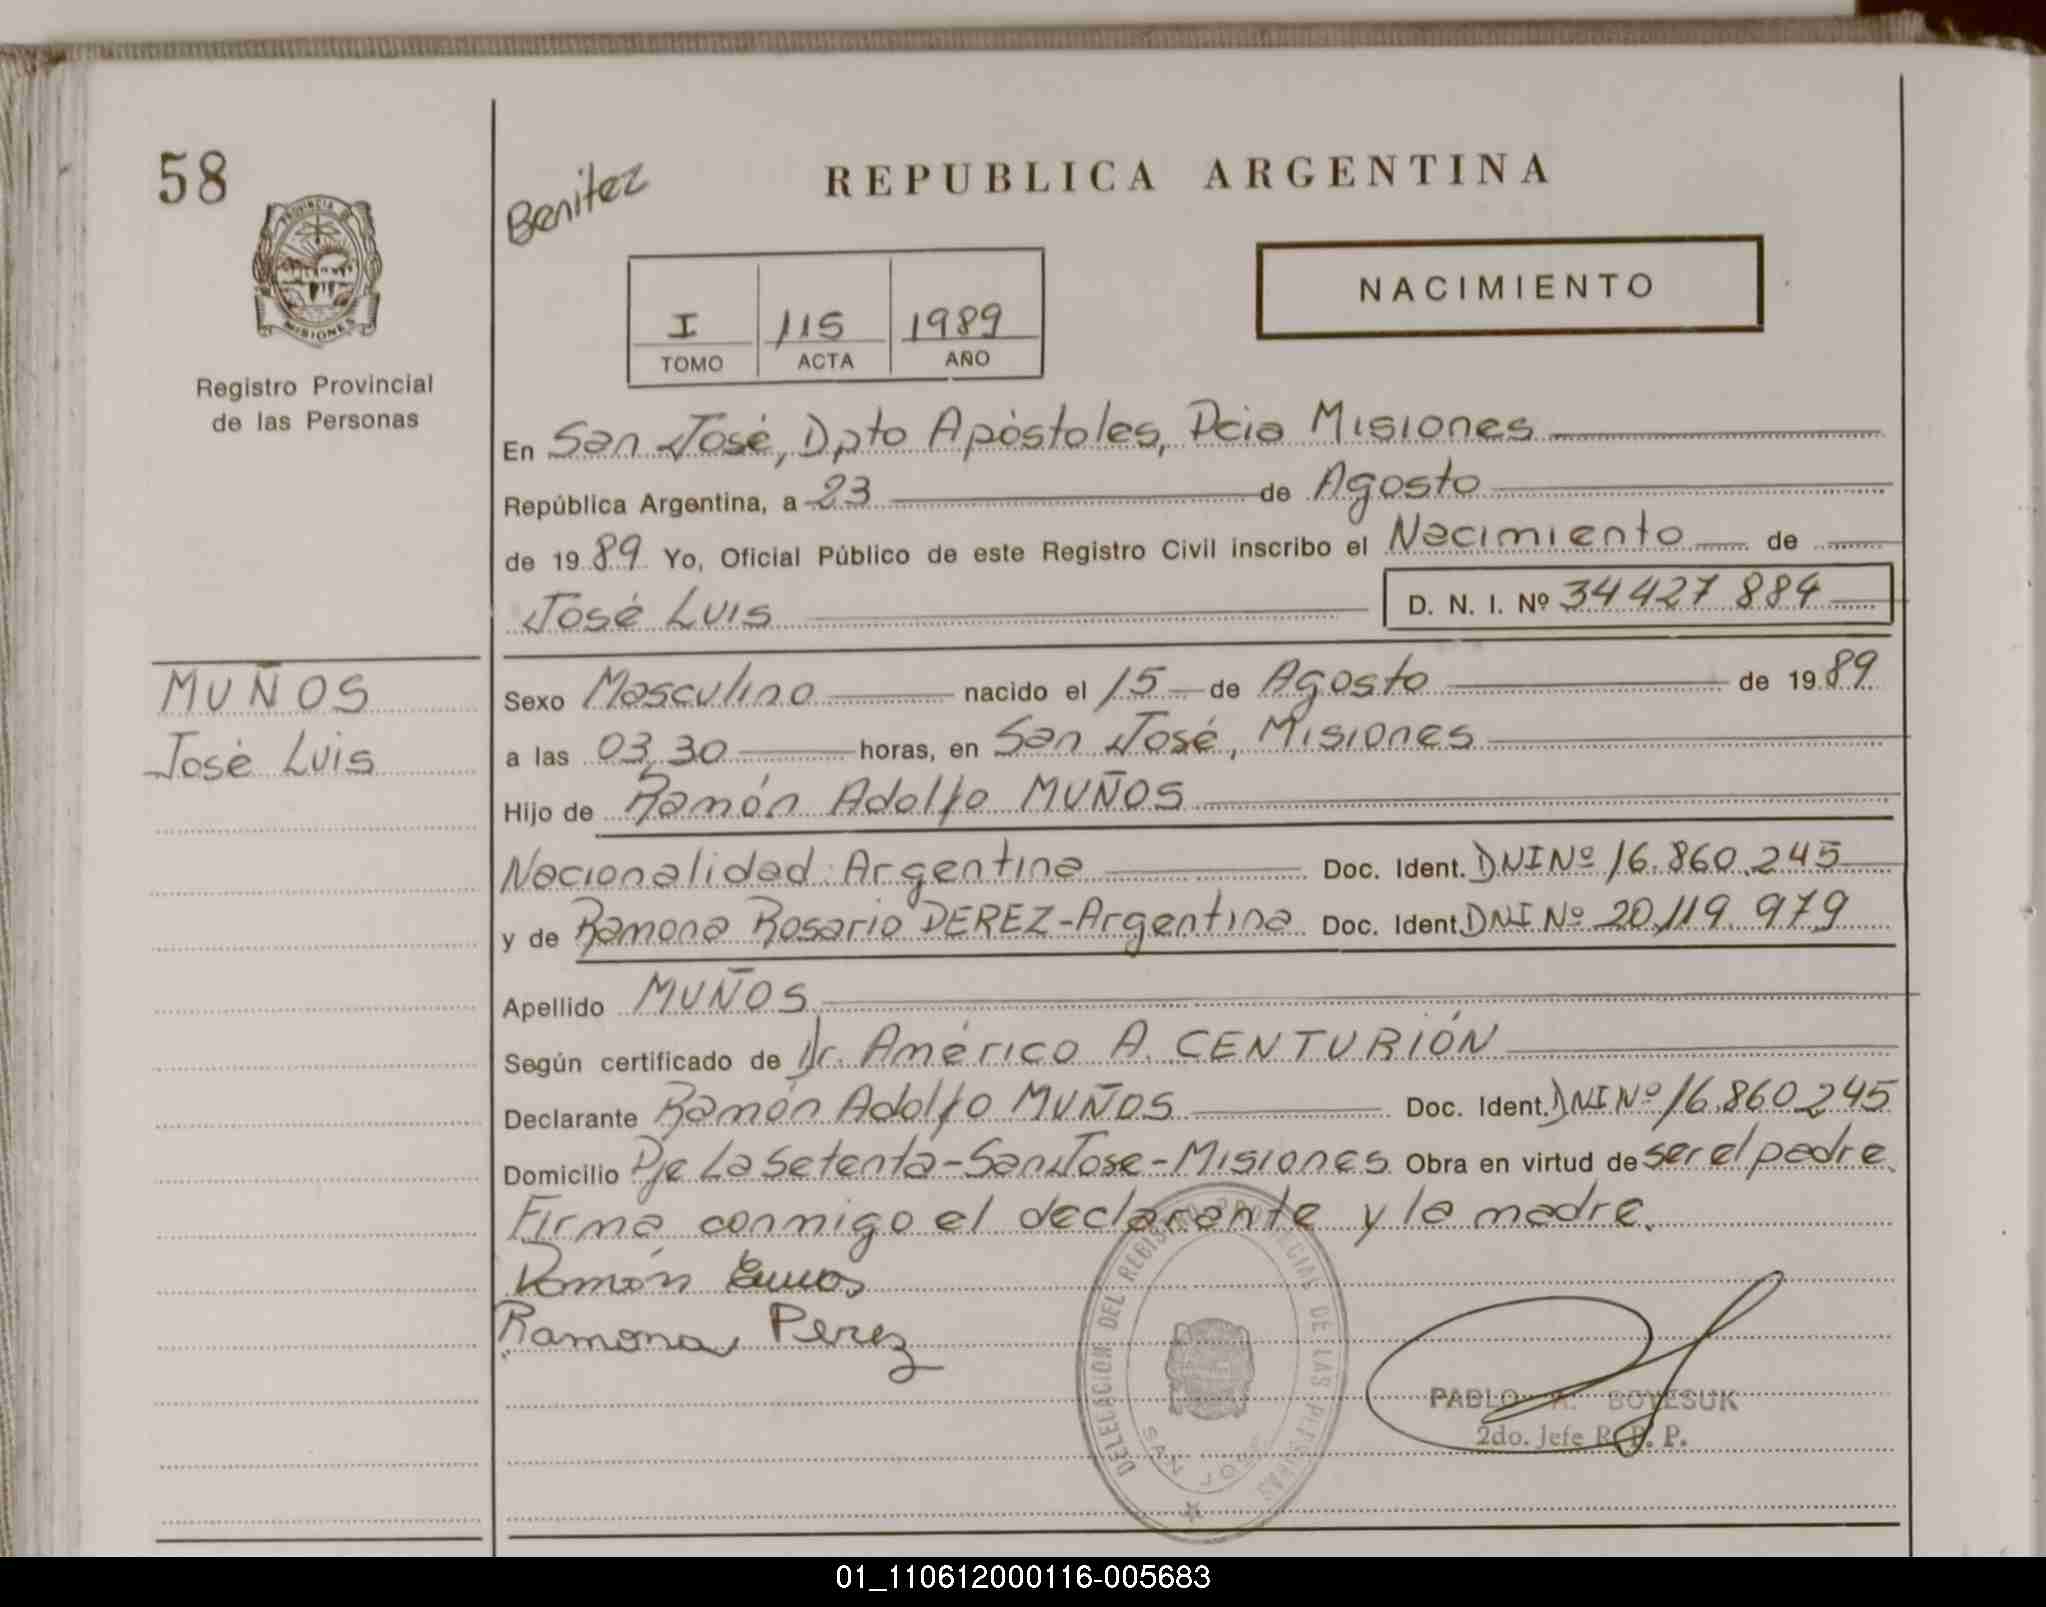 58
Benitez
REPUBLICA ARGENTINA
PROVINCIA DE
MISIONES
Registro Provincial
de las Personas
NACIMIENTO
I 115 1989
TOMO ACTA AÑO
En San José, Dpto Apóstoles, Pcia Misiones
República Argentina, a 23 de Agosto
de 1989 Yo, Oficial Público de este Registro Civil inscribo el Nacimiento de
José Luis D. N. I. Nº 34427884
MUÑOS
José Luis
Sexo Masculino nacido el 15 de Agosto de 1989
a las 03,30 horas, en San José, Misiones
Hijo de Ramón Adolfo MUÑOS
Nacionalidad: Argentina Doc. Ident. DNI Nº 16.860.245
y de Ramona Rosario PEREZ-Argentina Doc. Ident. DNI Nº 20.119.979
Apellido MUÑOS
Según certificado de Dr. Américo A. CENTURIÓN
Declarante Ramón Adolfo MUÑOS Doc. Ident. DNI Nº 16.860.245
Domicilio Pje La Setenta-San Jose-Misiones Obra en virtud de ser el padre.
Firma conmigo el declarante y la madre.
Ramón
Ramona Perez
DELEGACION DEL REGISTRO PROVINCIAL DE LAS PERSONAS
SAN JOSE
PABLO A. BOYESUK
2do. Jefe R. P. P.
01_110612000116-005683